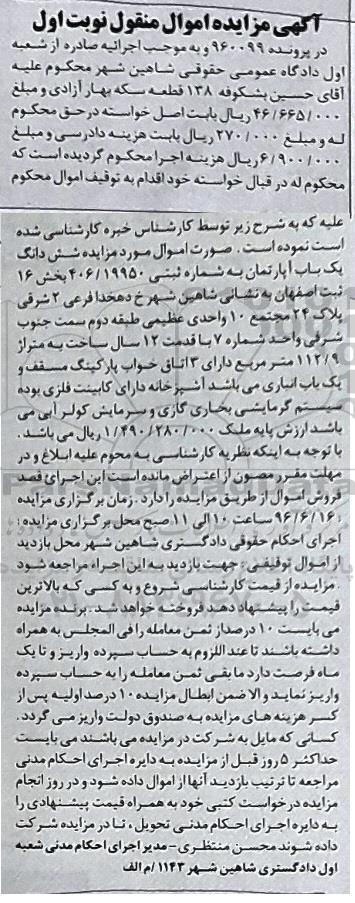 آگهی مزایده اموال منقول نوبت اول
در پرونده ۹۶۰۰۹۹ و به موجب اجرائیه صادره از شعبه
اول دادگاه عمومی حقوقی شاهین شهر محکوم علیه
آقای حسین بشکوفه ۱۳۸ قطعه سکه بهار آزادی و مبلغ
۴۶/۶۶۵/۰۰۰ ریال بابت اصل خواسته در حق محکوم
له و مبلغ ۲۷۰/۰۰۰ ریال بابت هزینه دادرسی و مبلغ
۶/۹۰۰/۰۰۰ ریال هزینه اجرا محکوم گردیده است که
محکوم له در قبال خواسته خود اقدام به توقیف اموال محکوم
علیه که به شرح زیر توسط کارشناس خبره کارشناسی شده
است نموده است . صورت اموال مورد مزایده شش دانگ
یک باب آپارتمان به شماره ثبتی ۴۰۶/۱۹۹۵۰ بخش ۱۶
ثبت اصفهان به نشانی شاهین شهر خ دهخدا فرعی ۲ شرقی
پلاک ۲۴ مجتمع ۱۰ واحدی عظیمی طبقه دوم سمت جنوب
شرقی واحد شماره ۷ با قدمت ۱۲ سال ساخت به متراژ
۱۱۲/۹ متر مربع دارای ۳ اتاق خواب پارکینگ مسقف و
یک باب انباری می باشد آشپزخانه دارای کابینت فلزی بوده
سیستم گرمایشی بخاری گازی و سرمایش کولر آبی می
باشد ارزش پایه ملک ۱/۴۹۰/۲۸۰/۰۰۰ ریال می باشد .
با توجه به اینکه نظریه کارشناسی به محوم علیه ابلاغ و در
مهلت مقرر مصون از اعتراض مانده است این اجرائ قصد
فروش اموال از طریق مزایده را دارد . زمان برگزاری مزایده
: ۹۶/۶/۱۶ ساعت ۱۰ الی ۱۱ صبح محل برگزاری مزایده :
اجرای احکام حقوقی دادگستری شاهین شهر محل بازدید
از اموال توقیفی : جهت بازدید به این اجراء مراجعه شود
. مزایده از قیمت کارشناسی شروع و به کسی که بالاترین
قیمت را پیشنهاد دهد فروخته خواهد شد . برنده مزایده
می بایست ۱۰ درصد از ثمن معامله را فی المجلس به همراه
داشته باشند تا عند اللزوم به حساب سپرده واریز و تا یک
ماه فرصت دارد ما بقی ثمن معامله را به حساب سپرده
واریز نماید و الا ضمن ابطال مزایده ۱۰ درصد اولیه پس از
کسر هزینه های مزایده به صندوق دولت واریز می گردد .
کسانی که مایل به شرکت در مزایده می باشند می بایست
حداکثر ۵ روز قبل از مزایده به دایره اجرای احکام مدنی
مراجعه تا ترتیب بازدید آنها از اموال داده شود و در روز انجام
مزایده درخواست کتبی خود به همراه قیمت پیشنهادی را
به دایره اجرای احکام مدنی تحویل ، تا در مزایده شرکت
داده شوند محسن منتظری - مدیر اجرای احکام مدنی شعبه
اول دادگستری شاهین شهر ۱۱۴۳/م الف